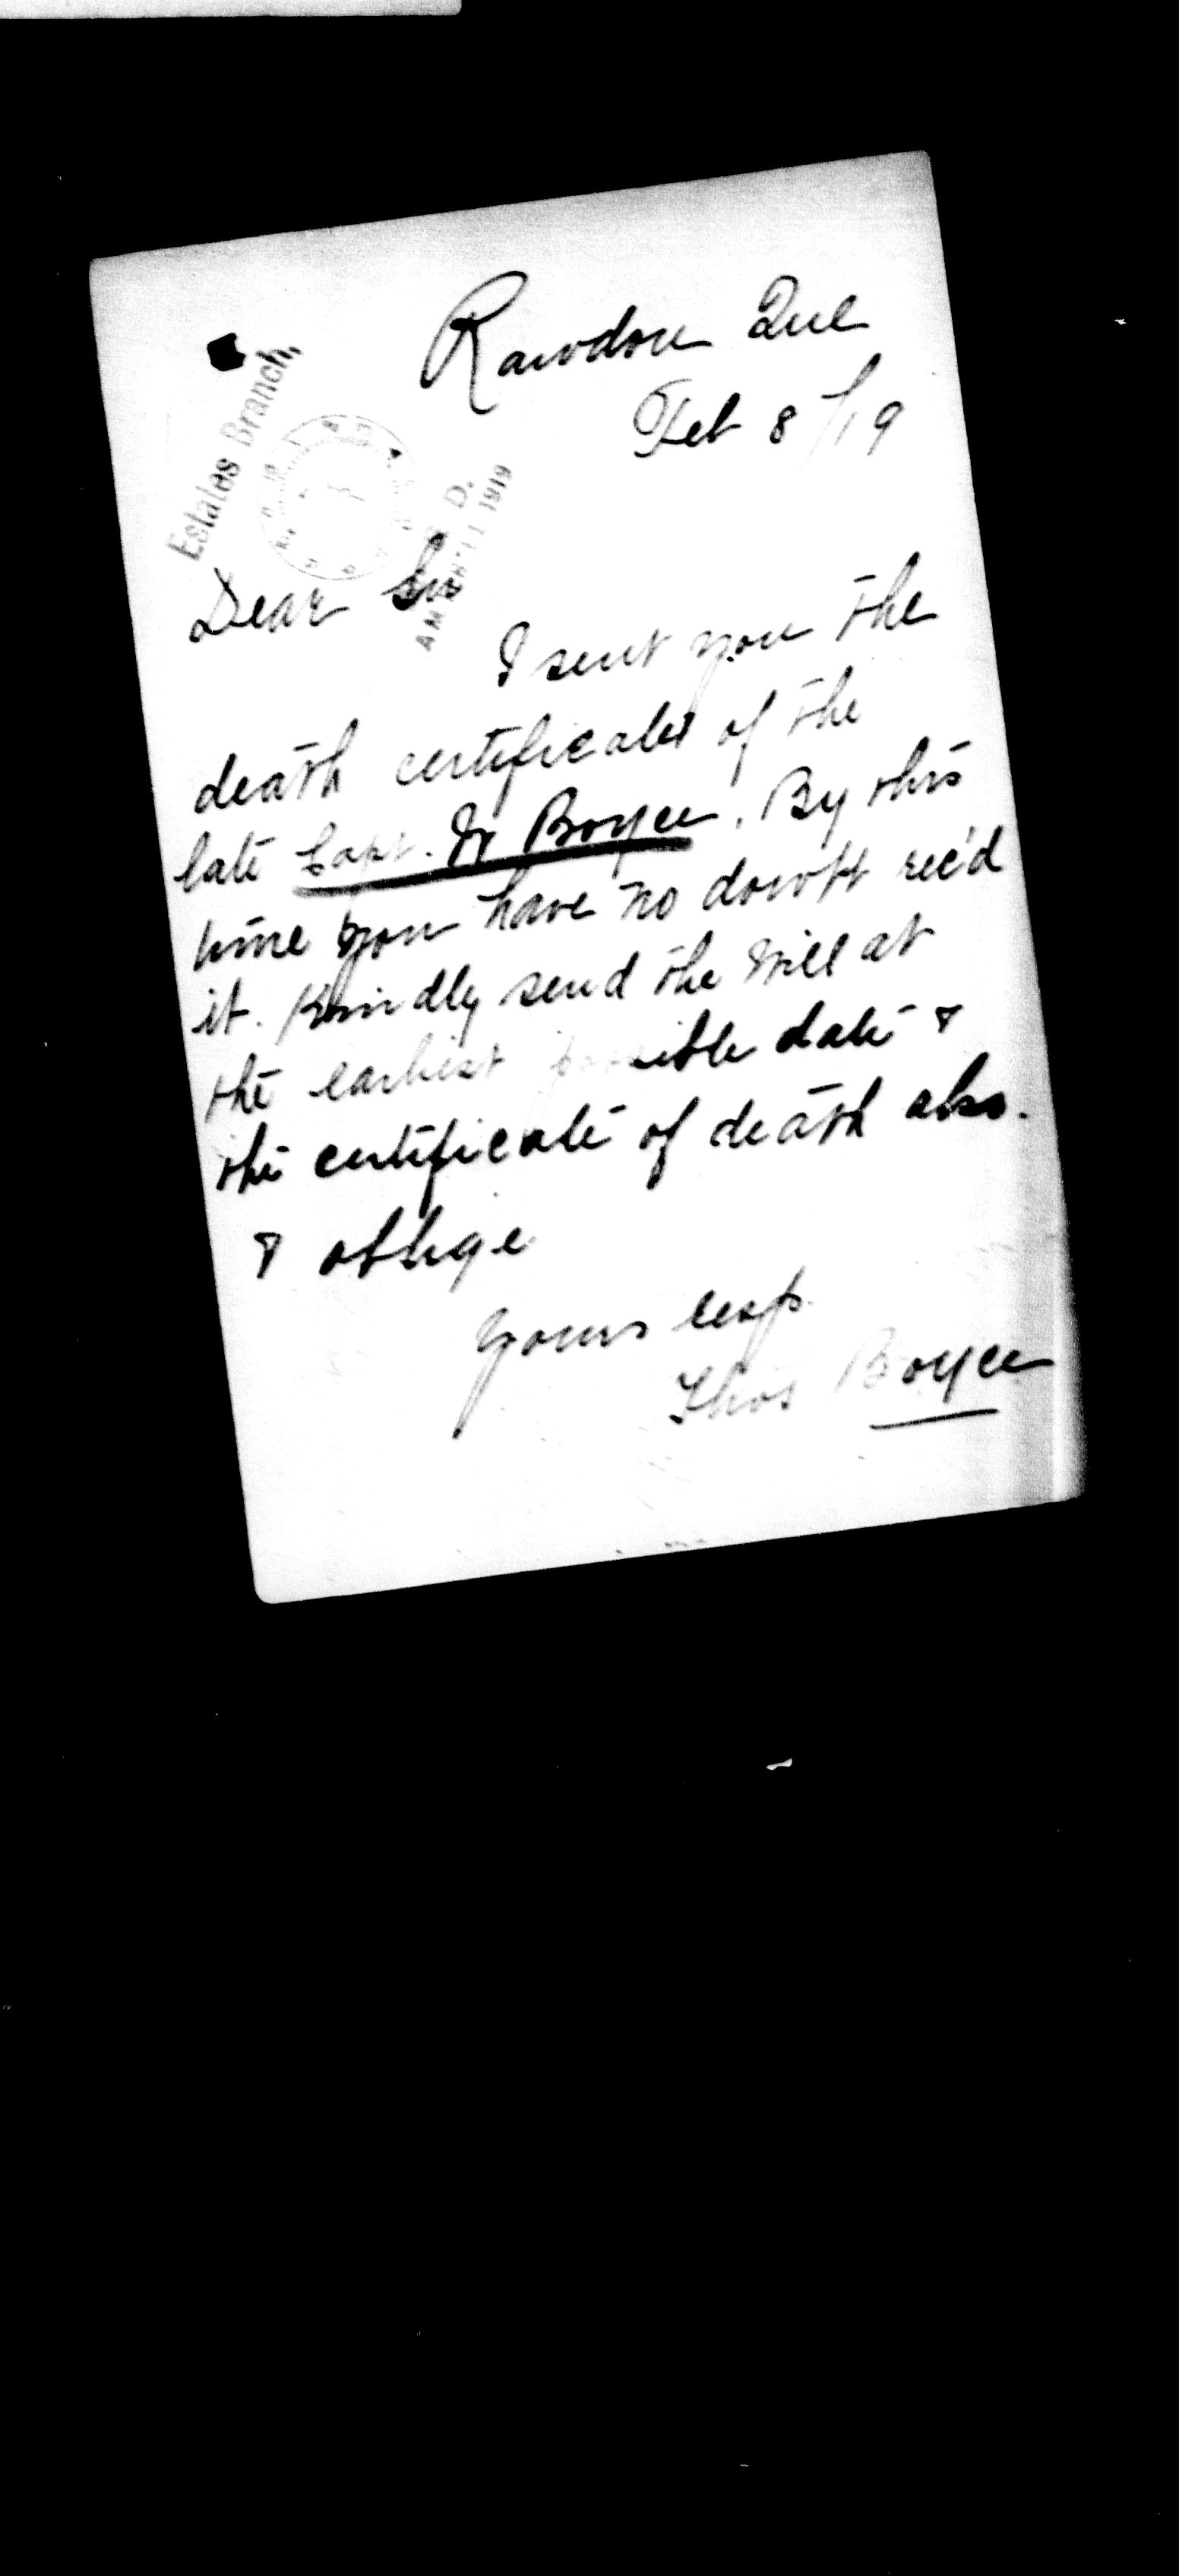 Rawdon Que
Feb 8/19
Estates Branch,
11 1919
AM
Dear Sir
I sent you the
death certificate of the
late Capt. W Boyce. By this
time you have no doubt rec'd
it. Kindly send the Will at
the earliest possible date &
the certificate of death also.
& oblige
Yours resp.
Thos Boyce